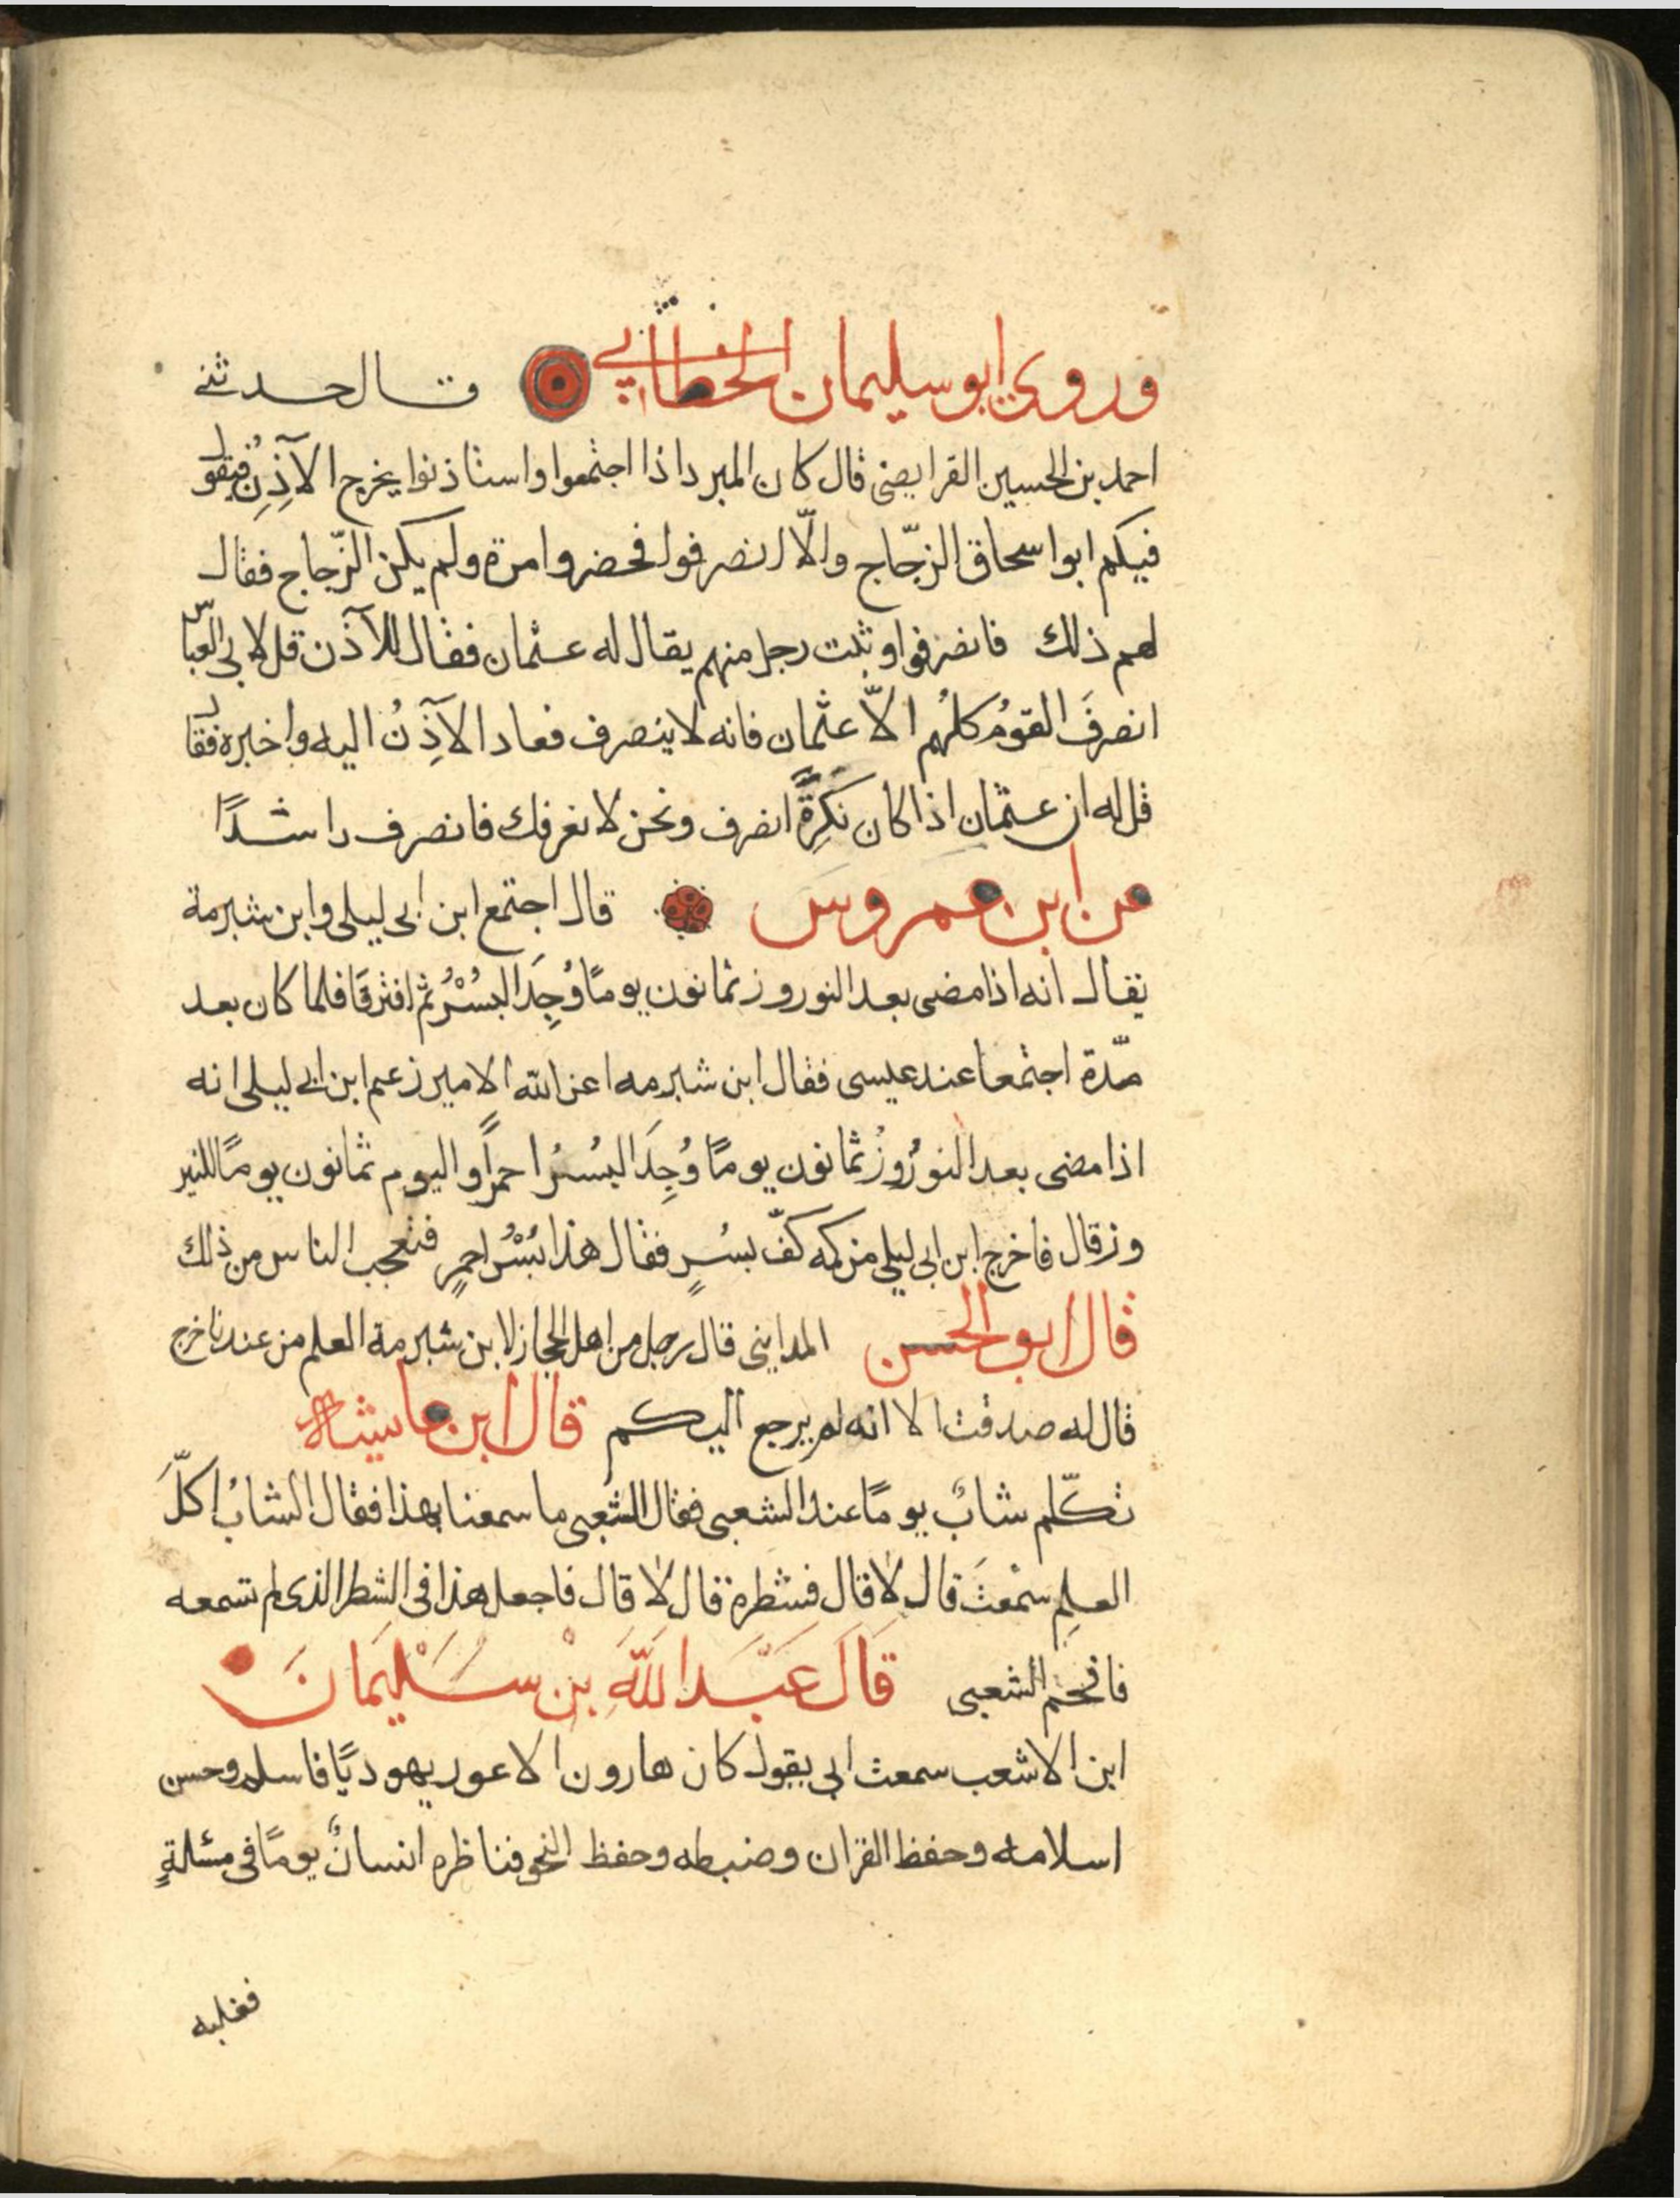 وروي ابو سليمان الخطابي قال حدثني
احمد بن الحسين الفرايضي قال كان المبرد اذا اجتمعوا واستاذنوا يخرج الآذِنُ فيقول
فيكم ابوا سحاق الزجّاج والّا انصرفوا فحضروا مرة ولم يكن الزّجاج فقال
لهم ذلك فانصرفوا وثبت رجل منهم يقال له عثمان فقال للآذن قل لابي العبّاس
انصرفَ القومُ كلهُم الّا عثمان فانه لا ينصرف فعاد الآذِنُ اليه واخبره فقال
قل له ان عثمان اذا كان نَكِرةً انصرف ونحن لا نعرفك فانصرف راشدًا
عن ابن عمروس قال اجتمع ابن ابي ليلى وابن شبرمة
يقال انه اذا مضى بعد النوروز ثمانون يومًا وُجِدَ البُسْرُ ثم افترقا فلما كان بعد
مدّة اجتمعا عند عيسى فقال ابن شبرمه اعز الله الامير زعم ابن ابي ليلى انه
اذا مضى بعد النورُوزُ ثمانون يومًا وُجِدَ البُسْرُ احمرًا واليوم ثمانون يومًا للنير
وز قال فاخرج ابن ابي ليلى من كمه كفّ بسُرٍ فقال هذا بُسْرُ احمرٍ فتعجب الناس من ذلك
قال ابو الحسن المدايني قال رجل من اهل الحجاز لابن شبرمة العلم من عندنا خرج
قال له صدقت الا انه لم يرجع اليكم قال ابن عايشه
تكّلم شابٌ يومًا عند الشعبي فقال الشعبي ما سمعنا بهذا فقال الشابُ اكلّ
العلمِ سمعتَ قال لا قال فشطره قال لا قال فاجعل هذا في الشطر الذي لم تسمعه
فافحم الشعبي قَالَ عَبْدَ اللّهَ بِنْ سَلْيمَانَ
ابن الاشعب سمعت ابي يقول كان هارون الاعور يهوديًا فاسلم وحسن
اسلامه وحفظ القران وضبطه وحفظ النحو فناظره انسانٌ يومًا في مسئلةٍ
فغلبه